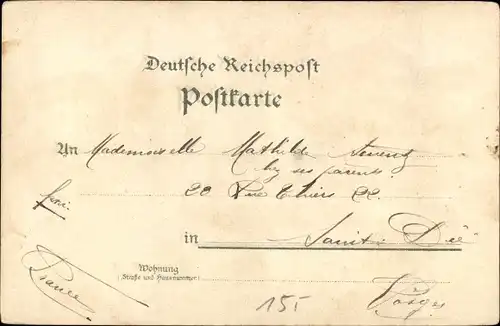 Deutsche Reichspost
Postkarte
An Mademoiselle Mathilde
ses parents
20 Rue Thiers 22.
in Saint-Dié
Wohnung
(Straße und Hausnummer)
France
Vosges
155